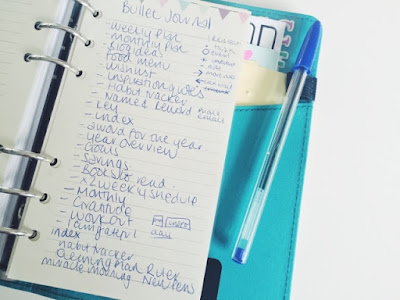 Bullet Journal
- weekly plan
- monthly plan
- Blog ideas
- Food menu
- wishlist
- inspiration quotes
- Habit tracker
- Name & Reward
- Key
- index
- 2 word for the year
- Year overview
- Goals
- Savings
- Books to read
- x2 weekly schedule
- Monthly
- Gratitude
- Workout
- I am grateful
index
habit tracker
Cleaning Plan Ruler
miracle morning New Pens
EVENT